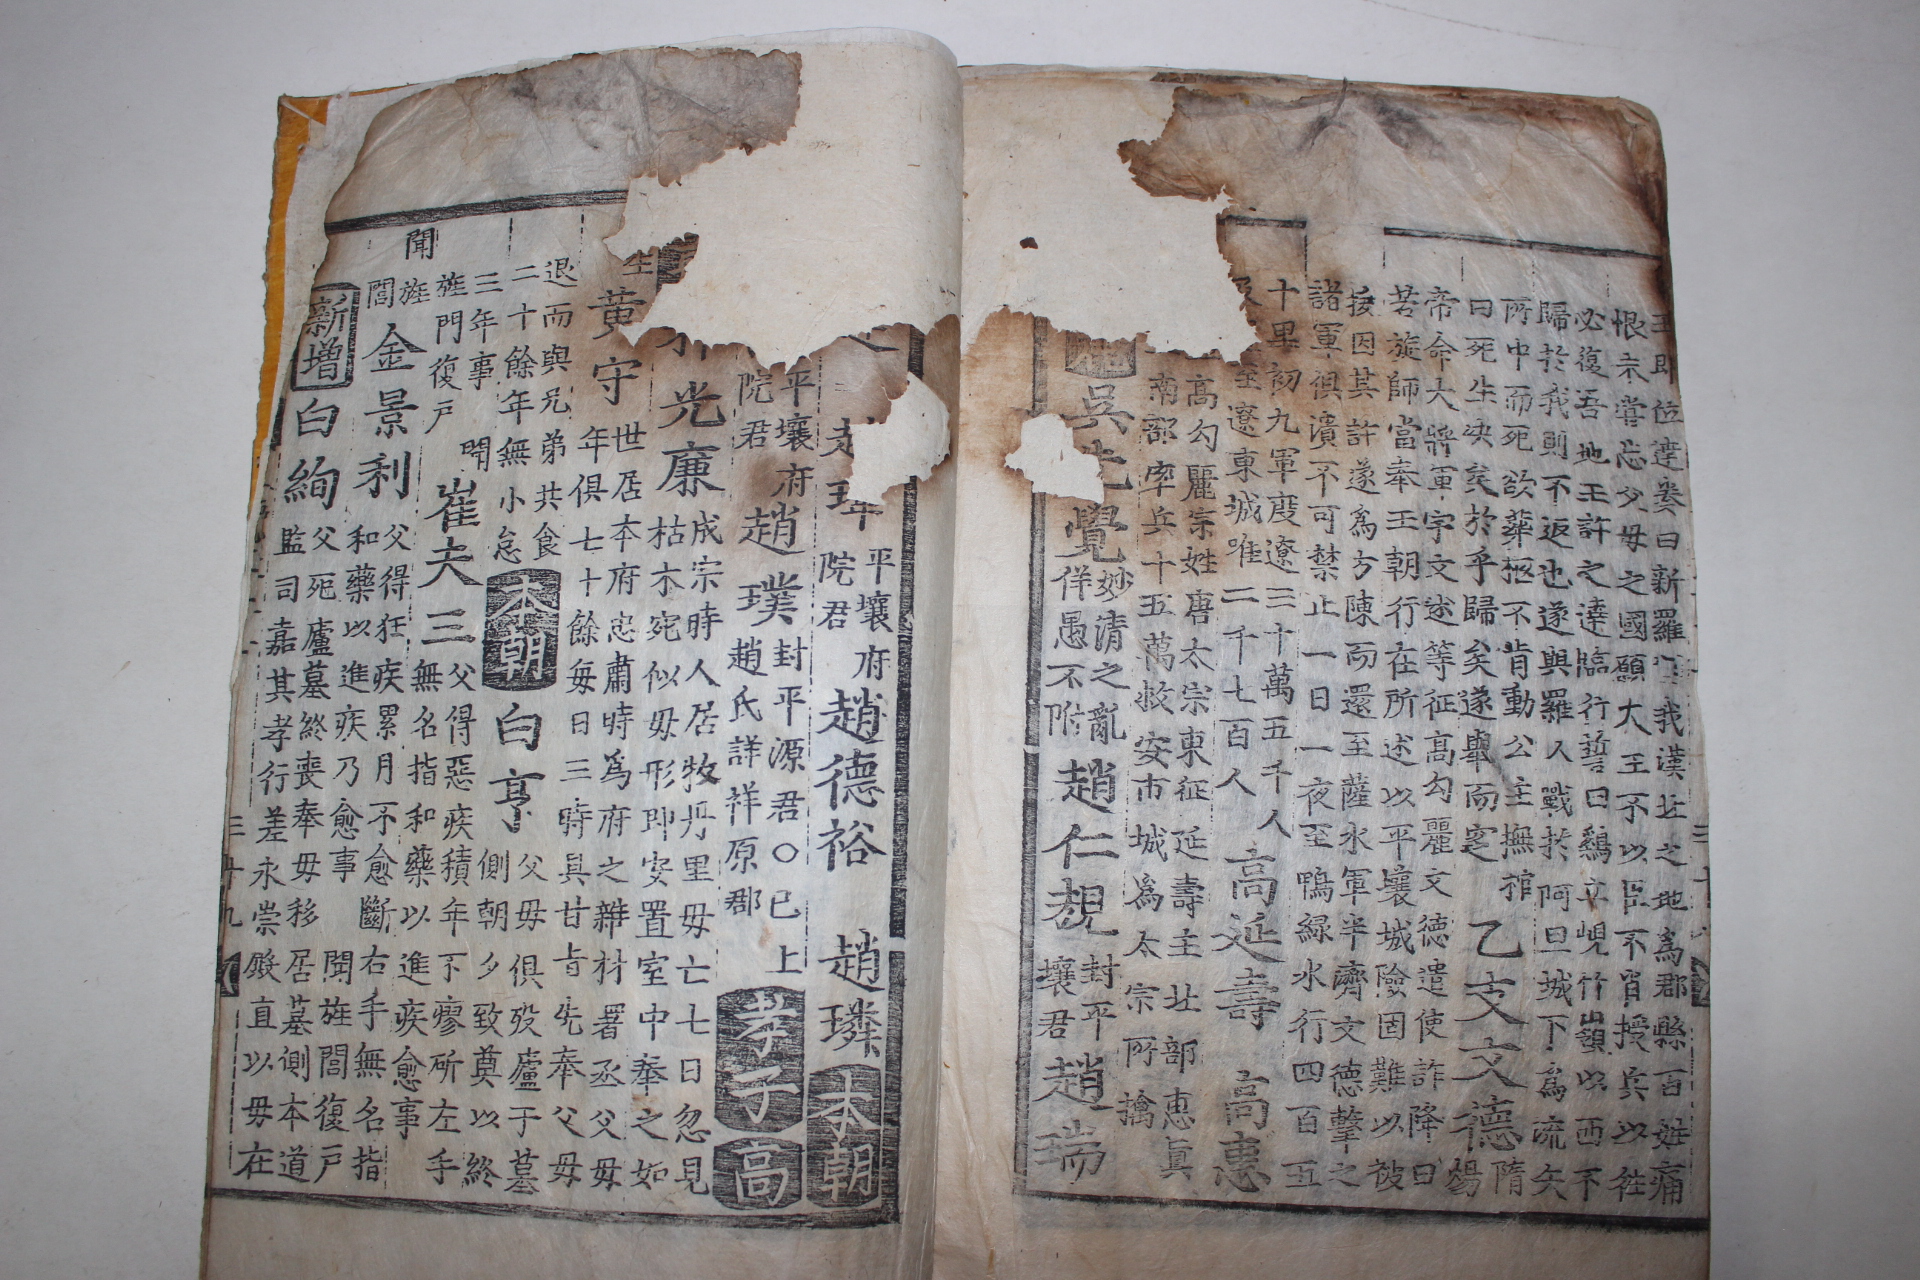 王即位達奏曰新羅我漢北之地爲郡縣百姓痛
恨未嘗忘父母之國願大王不以臣不肖授兵以往
必復吾地王許之達臨行誓曰鷄立峴竹嶺以西不
歸於我則不返也遂與羅人戰於阿旦城下爲流矢
所中而死欲葬柩不肯動公主撫棺
曰死生決矣於乎歸矣遂擧而窆
乙支文德
隋
煬
帝命大將軍宇文述等征高勾麗文德遣使詐降曰
若旋師當奉王朝行在所述以平壤城險固難以猝
拔因其詐遂爲方陳而還至薩水軍半濟文德擊之
諸軍俱潰不可禁止一日一夜至鴨綠水行四百五
十里初九軍度遼三十萬五千人
及至遼東城唯二千七百人
高延壽 高惠
高勾麗宗姓唐太宗東征延壽主北部惠眞
南部率兵十五萬救安市城爲太宗所擒
吳先覺
妙清之亂
佯愚不附
趙仁規
封平
壤君
趙瑞
趙瑋
平壤府
院君
趙德裕 趙璘 本朝
平壤府
院君
趙璞
封平源君○已上
趙氏詳祥原郡
孝子 高
光廉
成宗時人居牧丹里母亡七日忽見
枯木宛似母形即安置室中奉之如
生
黃守
世居本府忠肅時爲府之雜材署丞父母
年俱七十餘每日三時具甘旨先奉父母
退而與兄弟共食
二十餘年無小怠
本朝 白亨
父母俱歿廬于墓
側朝夕致奠以終
三年事
聞
旌門復戶
崔夫三
父得惡疾積年不瘳斫左手
無名指和藥以進疾愈事
聞
旌
閭
金景利
父得狂疾累月不愈斷右手無名指
和藥以進疾乃愈事聞旌閭復戶
新增 白絢
父死廬墓終喪奉母移居墓側本道
監司嘉其孝行差永崇殿直以母在
三十九